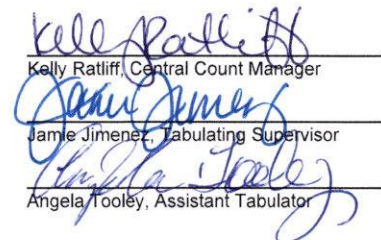 Kelly Ratliff
Kelly Ratliff, Central Count Manager
Jamie Jimenez
Jamie Jimenez, Tabulating Supervisor
Angela Tooley
Angela Tooley, Assistant Tabulator